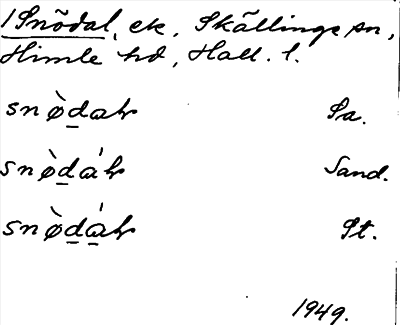 /Snödal, ek. Skällinge sn,
Himle hd, Hall. l.
snø̀d̲ah Sa.
snø̀d̲áh Sand.
snø̀d̲á̲h St.
1949.